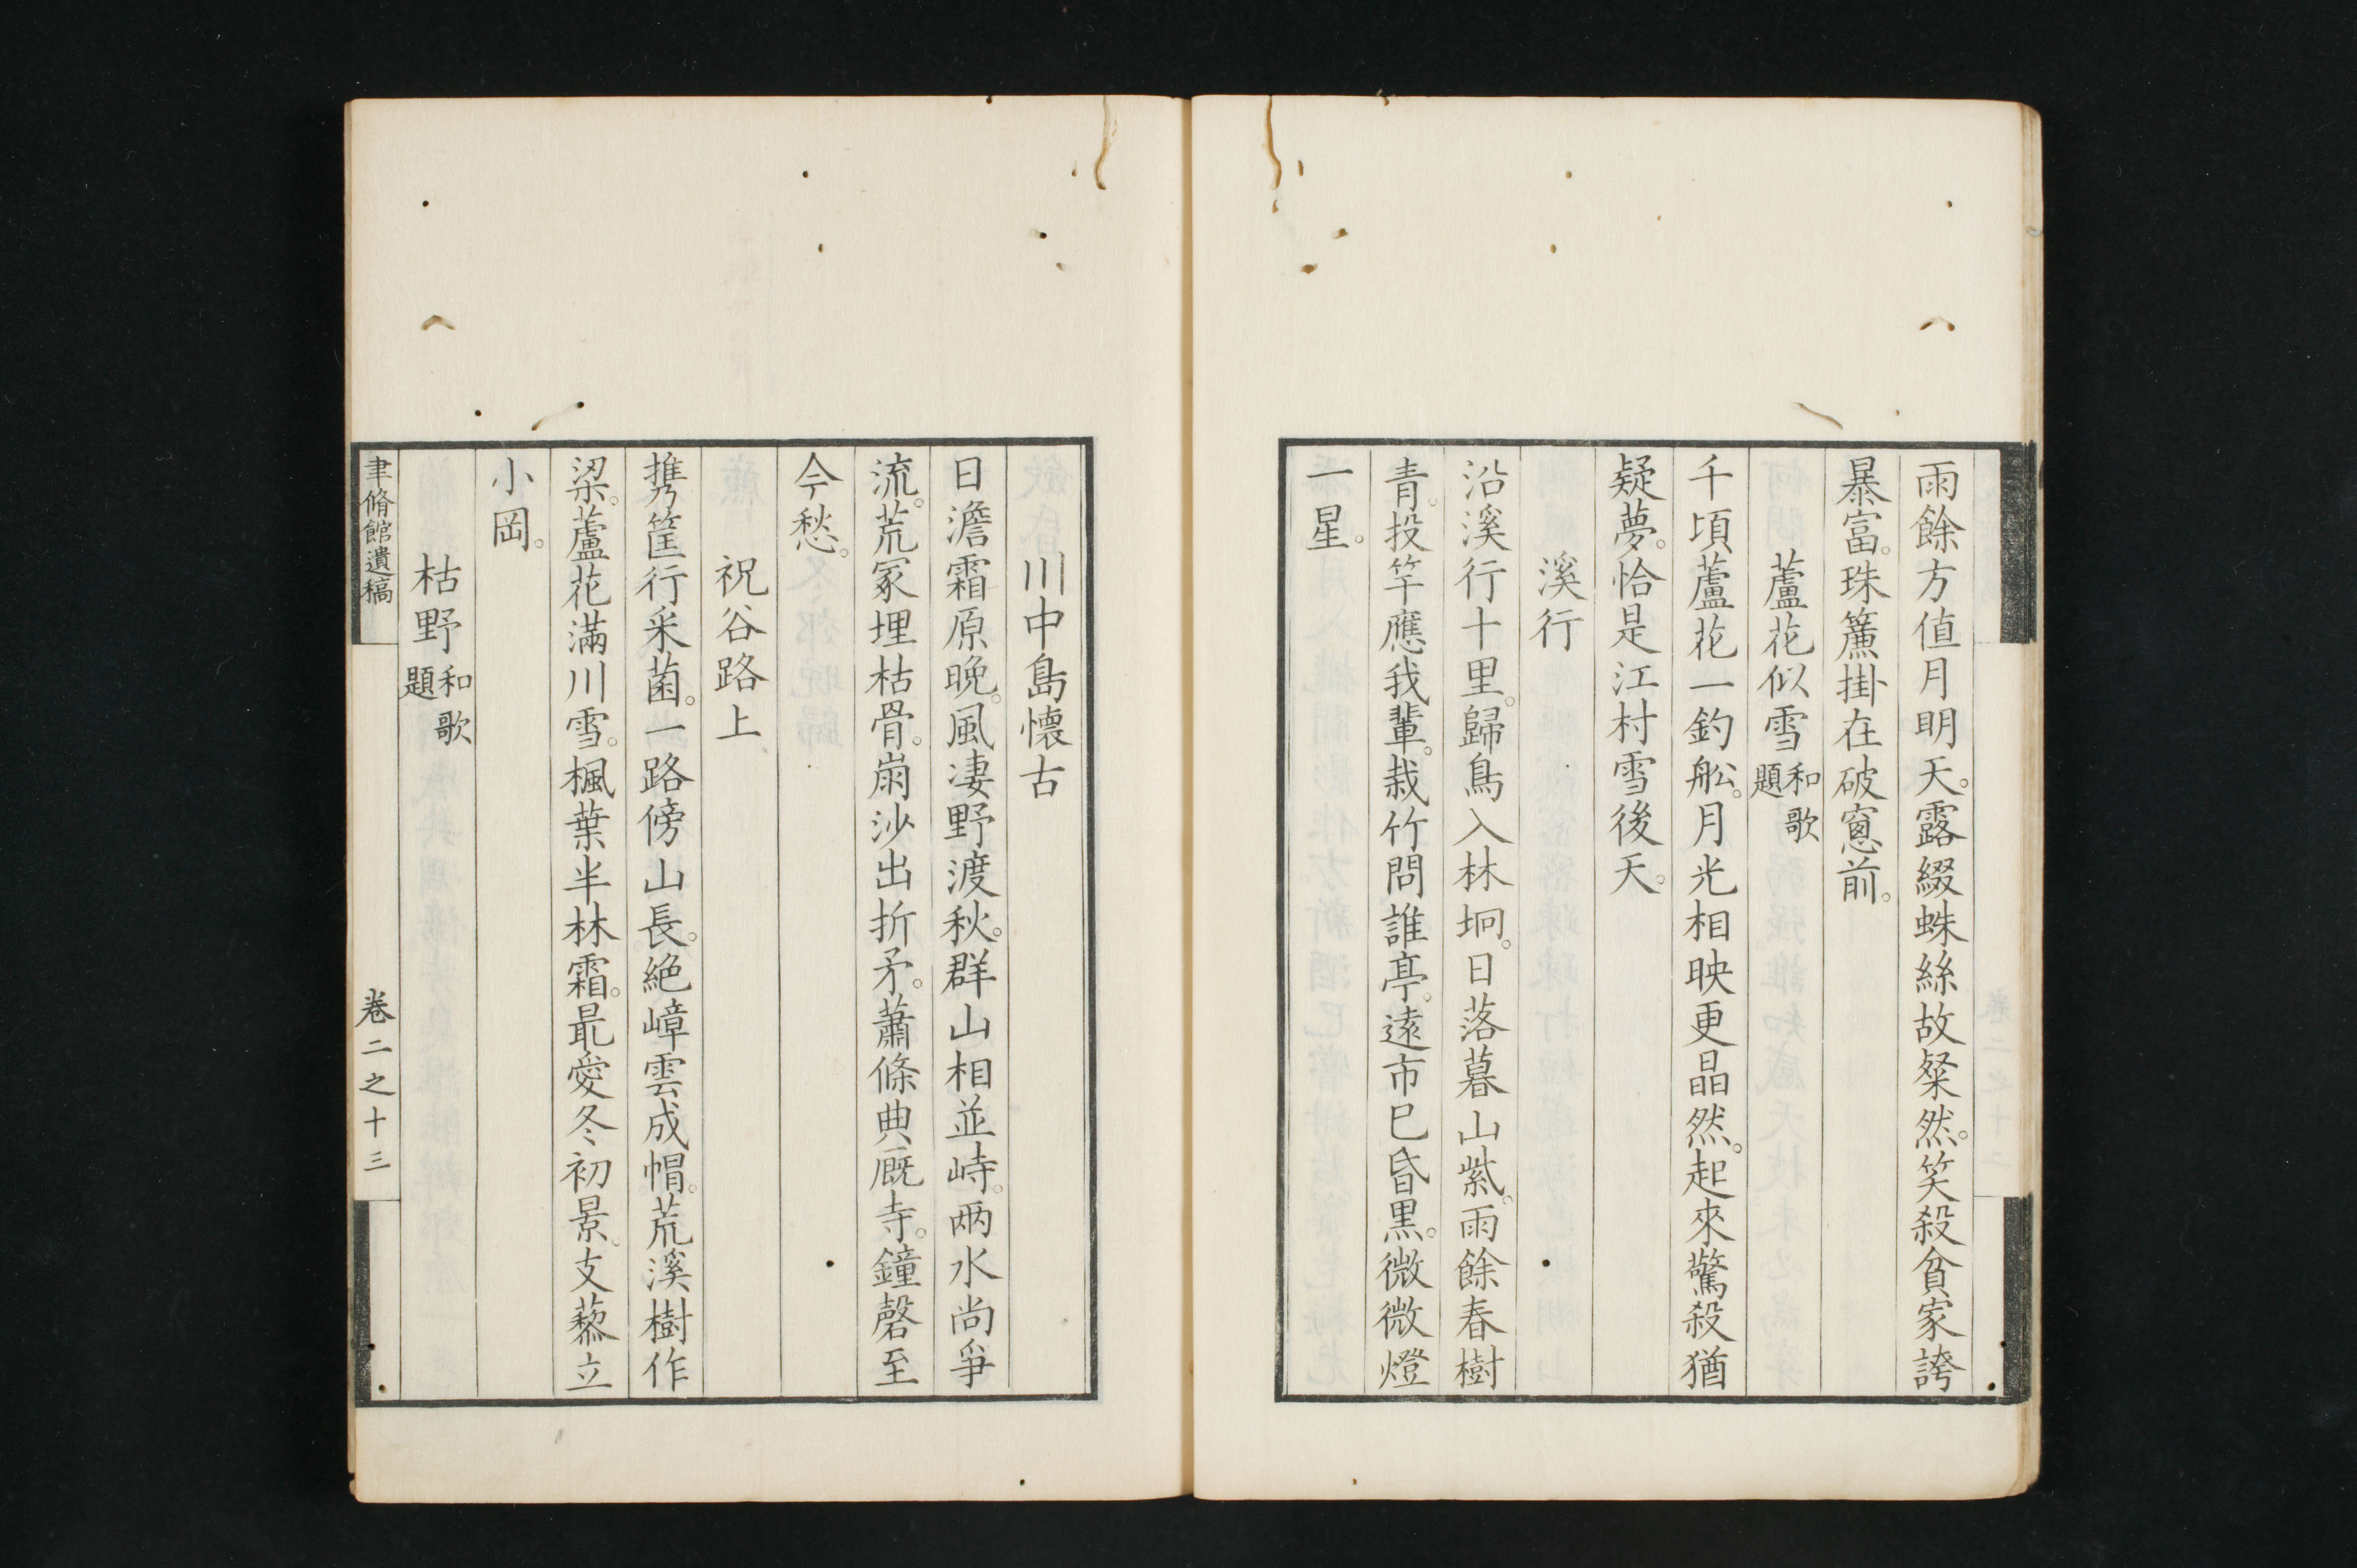 雨餘方值月明天。露綴蛛絲故粲然。笑殺貧家誇
暴富。珠簾掛在破窻前。
蘆花似雪和歌題
千頃蘆花一釣舩。月光相映更晶然。起來驚殺猶
疑夢。恰是江村雪後天。
溪行
沿溪行十里。歸鳥入林坰。日落暮山紫。雨餘春樹
青。投竿應我輩。栽竹問誰亭。遠市已昏黒。微微燈
一星。
川中島懷古
日澹霜原晩。風凄野渡秋。群山相並峙。兩水尚爭
流。荒冢埋枯骨。崩沙出折矛。蕭條典厩寺。鐘磬至
今愁。
祝谷路上
携筐行采菌。一路傍山長。絶嶂雲成帽。荒溪樹作
梁。蘆花滿川雪。楓葉半林霜。最愛冬初景。支藜立
小岡。
枯野和歌題
聿脩館遺稿
卷二之十三